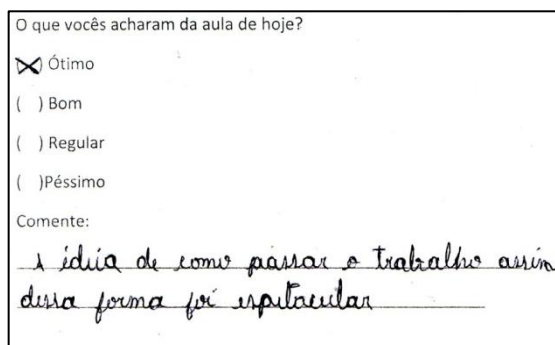 O que vocês acharam da aula de hoje?
(X) Ótimo
( ) Bom
( ) Regular
( )Péssimo
Comente:
A idéia de como passar o trabalho assim
dessa forma foi espetacular